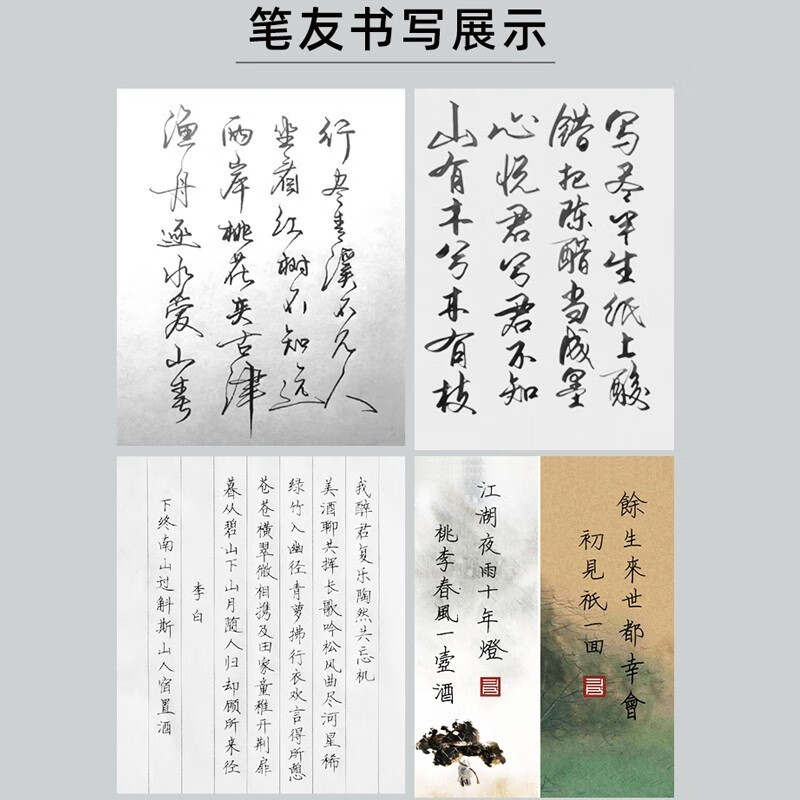 笔友书写展示
渔舟逐水爱山春
两岸桃花夹古津
坐看红树不知远
行尽青溪不见人
山有木兮木有枝
心悦君兮君不知
错把陈醋当成墨
写尽半生纸上酸
下终南山过斛斯山人宿置酒
李白
暮从碧山下山月隨人归却顾所来径
苍苍横翠微相携及田家童稚开荆扉
绿竹入幽径青萝拂行衣欢言得所憩
美酒聊共挥长歌吟松风曲尽河星稀
我醉君复乐陶然共忘机
桃李春風一壺酒
江湖夜雨十年燈
初見祇一面
餘生來世都幸會